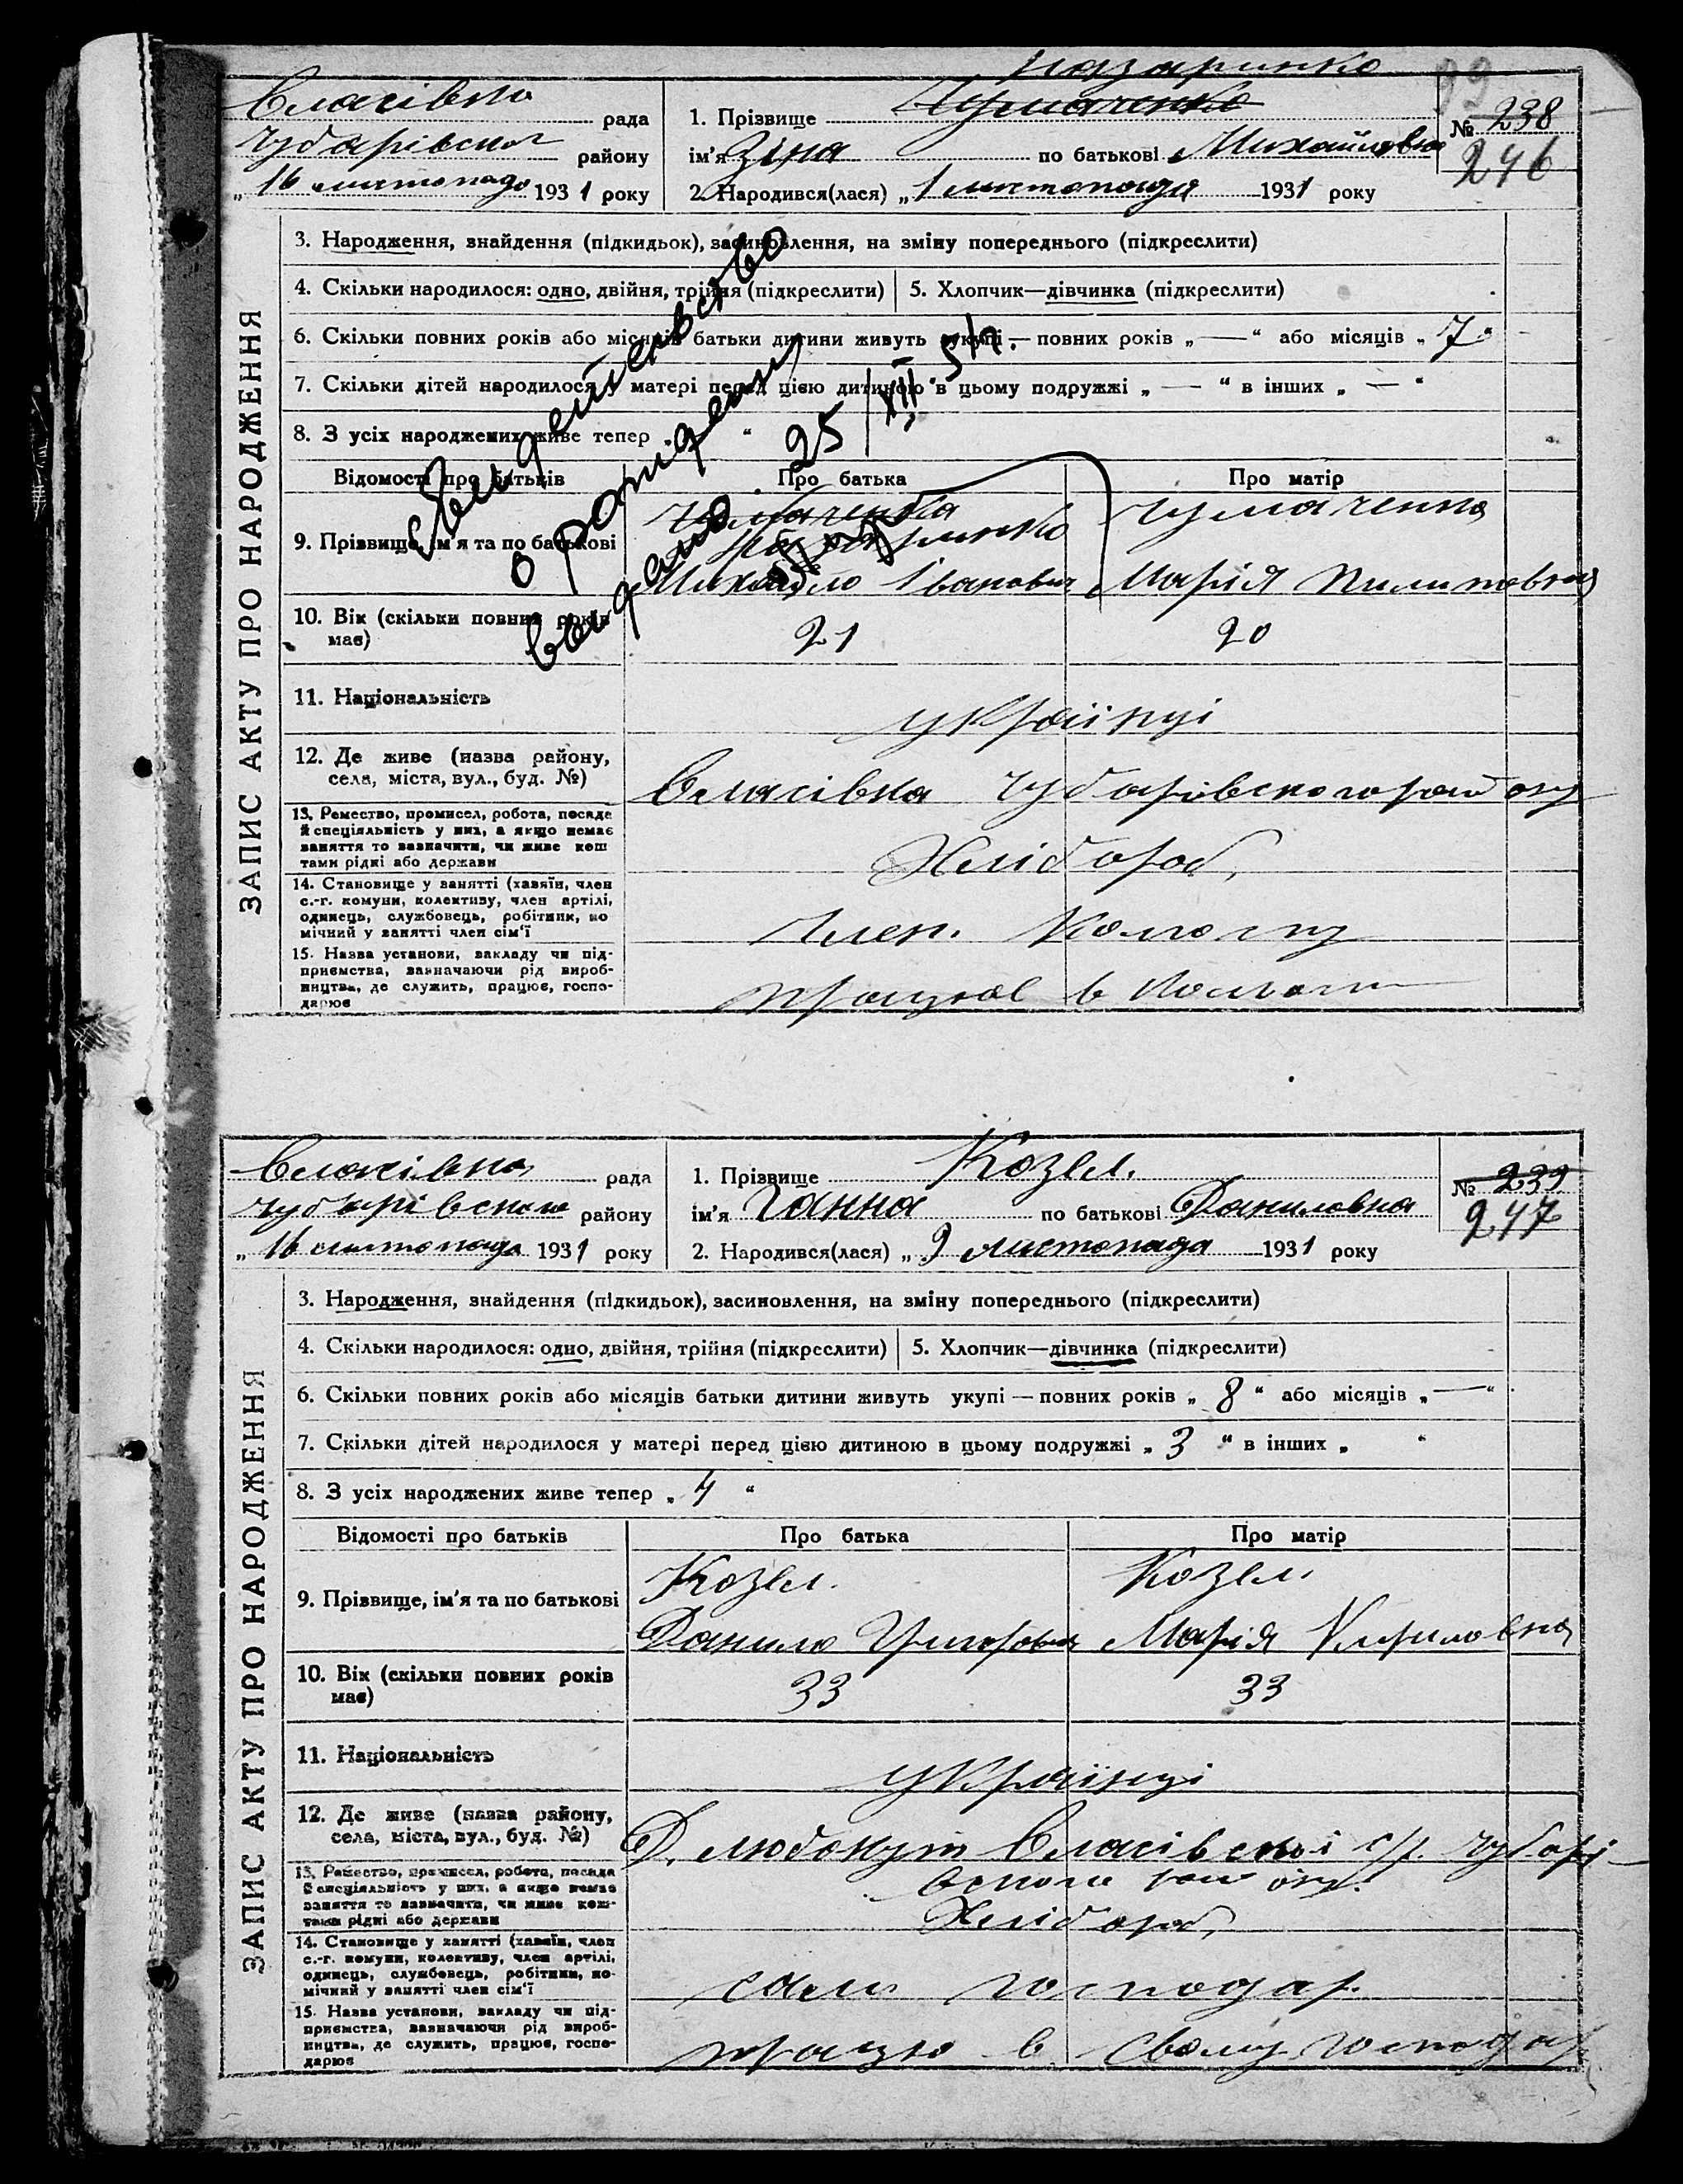 Назаринко
Власівка рада
Чубарівског району
„16 листопада 1931 року
1. Прізвище Чумаченко
ім'я Зіна по батькові Михайловна
2. Народився(лася) „1 листопада 1931 року
99
№ 238
246
ЗАПИС АКТУ ПРО НАРОДЖЕННЯ
3. Народження, знайдення (підкидьок), засиновлення, на зміну попереднього (підкреслити)
4. Скільки народилося: одно, двійня, трійня (підкреслити) 5. Хлопчик—дівчинка (підкреслити)
6. Скільки повних років або місяців батьки дитини живуть укупі — повних років „ — “ або місяців „ 7 “
7. Скільки дітей народилося у матері перед цією дитиною в цьому подружжі „ — “ в інших „ — “
8. З усіх народжених живе тепер „ “
свидетельство
о рождении
выдано 25/XII 54
Відомості про батьків Про батька Про матір
9. Прізвище, ім'я та по батькові
Чумаченко
Назаринко
Михайло Іванович
Чумаченко
Марія Пилиповна
10. Вік (скільки повних років має) 21 20
11. Національність українці
12. Де живе (назва району, села, міста, вул., буд. №) Власівка Чубарівского району
13. Ремество, промисел, робота, посада
й спеціяльність у них, а якщо немає
заняття то зазначити, чи живе кош
тами рідні або держави
Хлібороб,
14. Становище у занятті (хазяїн, член
с.-г. комуни, колективу, член артілі,
одинець, службовець, робітник, по
мічний у занятті член сім'ї
Член. Колгоспу
15. Назва установи, закладу чи під-
приємства, зазначаючи рід вироб-
ництва, де служить, працює, госпо-
дарює
працює в Колгоспі
Власівка рада
Чубарівского району
„16 листопада 1931 року
1. Прізвище Козел.
ім'я Ганна по батькові Даниловна
2. Народився(лася) „9 листопада 1931 року
№ 239
247
ЗАПИС АКТУ ПРО НАРОДЖЕННЯ
3. Народження, знайдення (підкидьок), засиновлення, на зміну попереднього (підкреслити)
4. Скільки народилося: одно, двійня, трійня (підкреслити) 5. Хлопчик—дівчинка (підкреслити)
6. Скільки повних років або місяців батьки дитини живуть укупі — повних років „ 8 “ або місяців „ — “
7. Скільки дітей народилося у матері перед цією дитиною в цьому подружжі „ 3 “ в інших „ “
8. З усіх народжених живе тепер „ 4 “
Відомості про батьків Про батька Про матір
9. Прізвище, ім'я та по батькові
Козел.
Данило Григорович
Козел.
Марія Кириловна
10. Вік (скільки повних років має) 33 33
11. Національність українці
12. Де живе (назва району, села, міста, вул., буд. №) Д. Любокут Власівської с/р. Чубарі
вского району.
13. Ремество, промисел, робота, посада
й спеціяльність у них, а якщо немає
заняття то зазначити, чи живе кош-
тами рідні або держави
Хлібороб,
14. Становище у занятті (хазяїн, член
с.-г. комуни, колективу, член артілі,
одинець, службовець, робітник, по-
мічний у занятті член сім'ї
сам господар.
15. Назва установи, закладу чи під-
приємства, зазначаючи рід вироб-
ництва, де служить, працює, госпо-
дарює
працює в свому господар